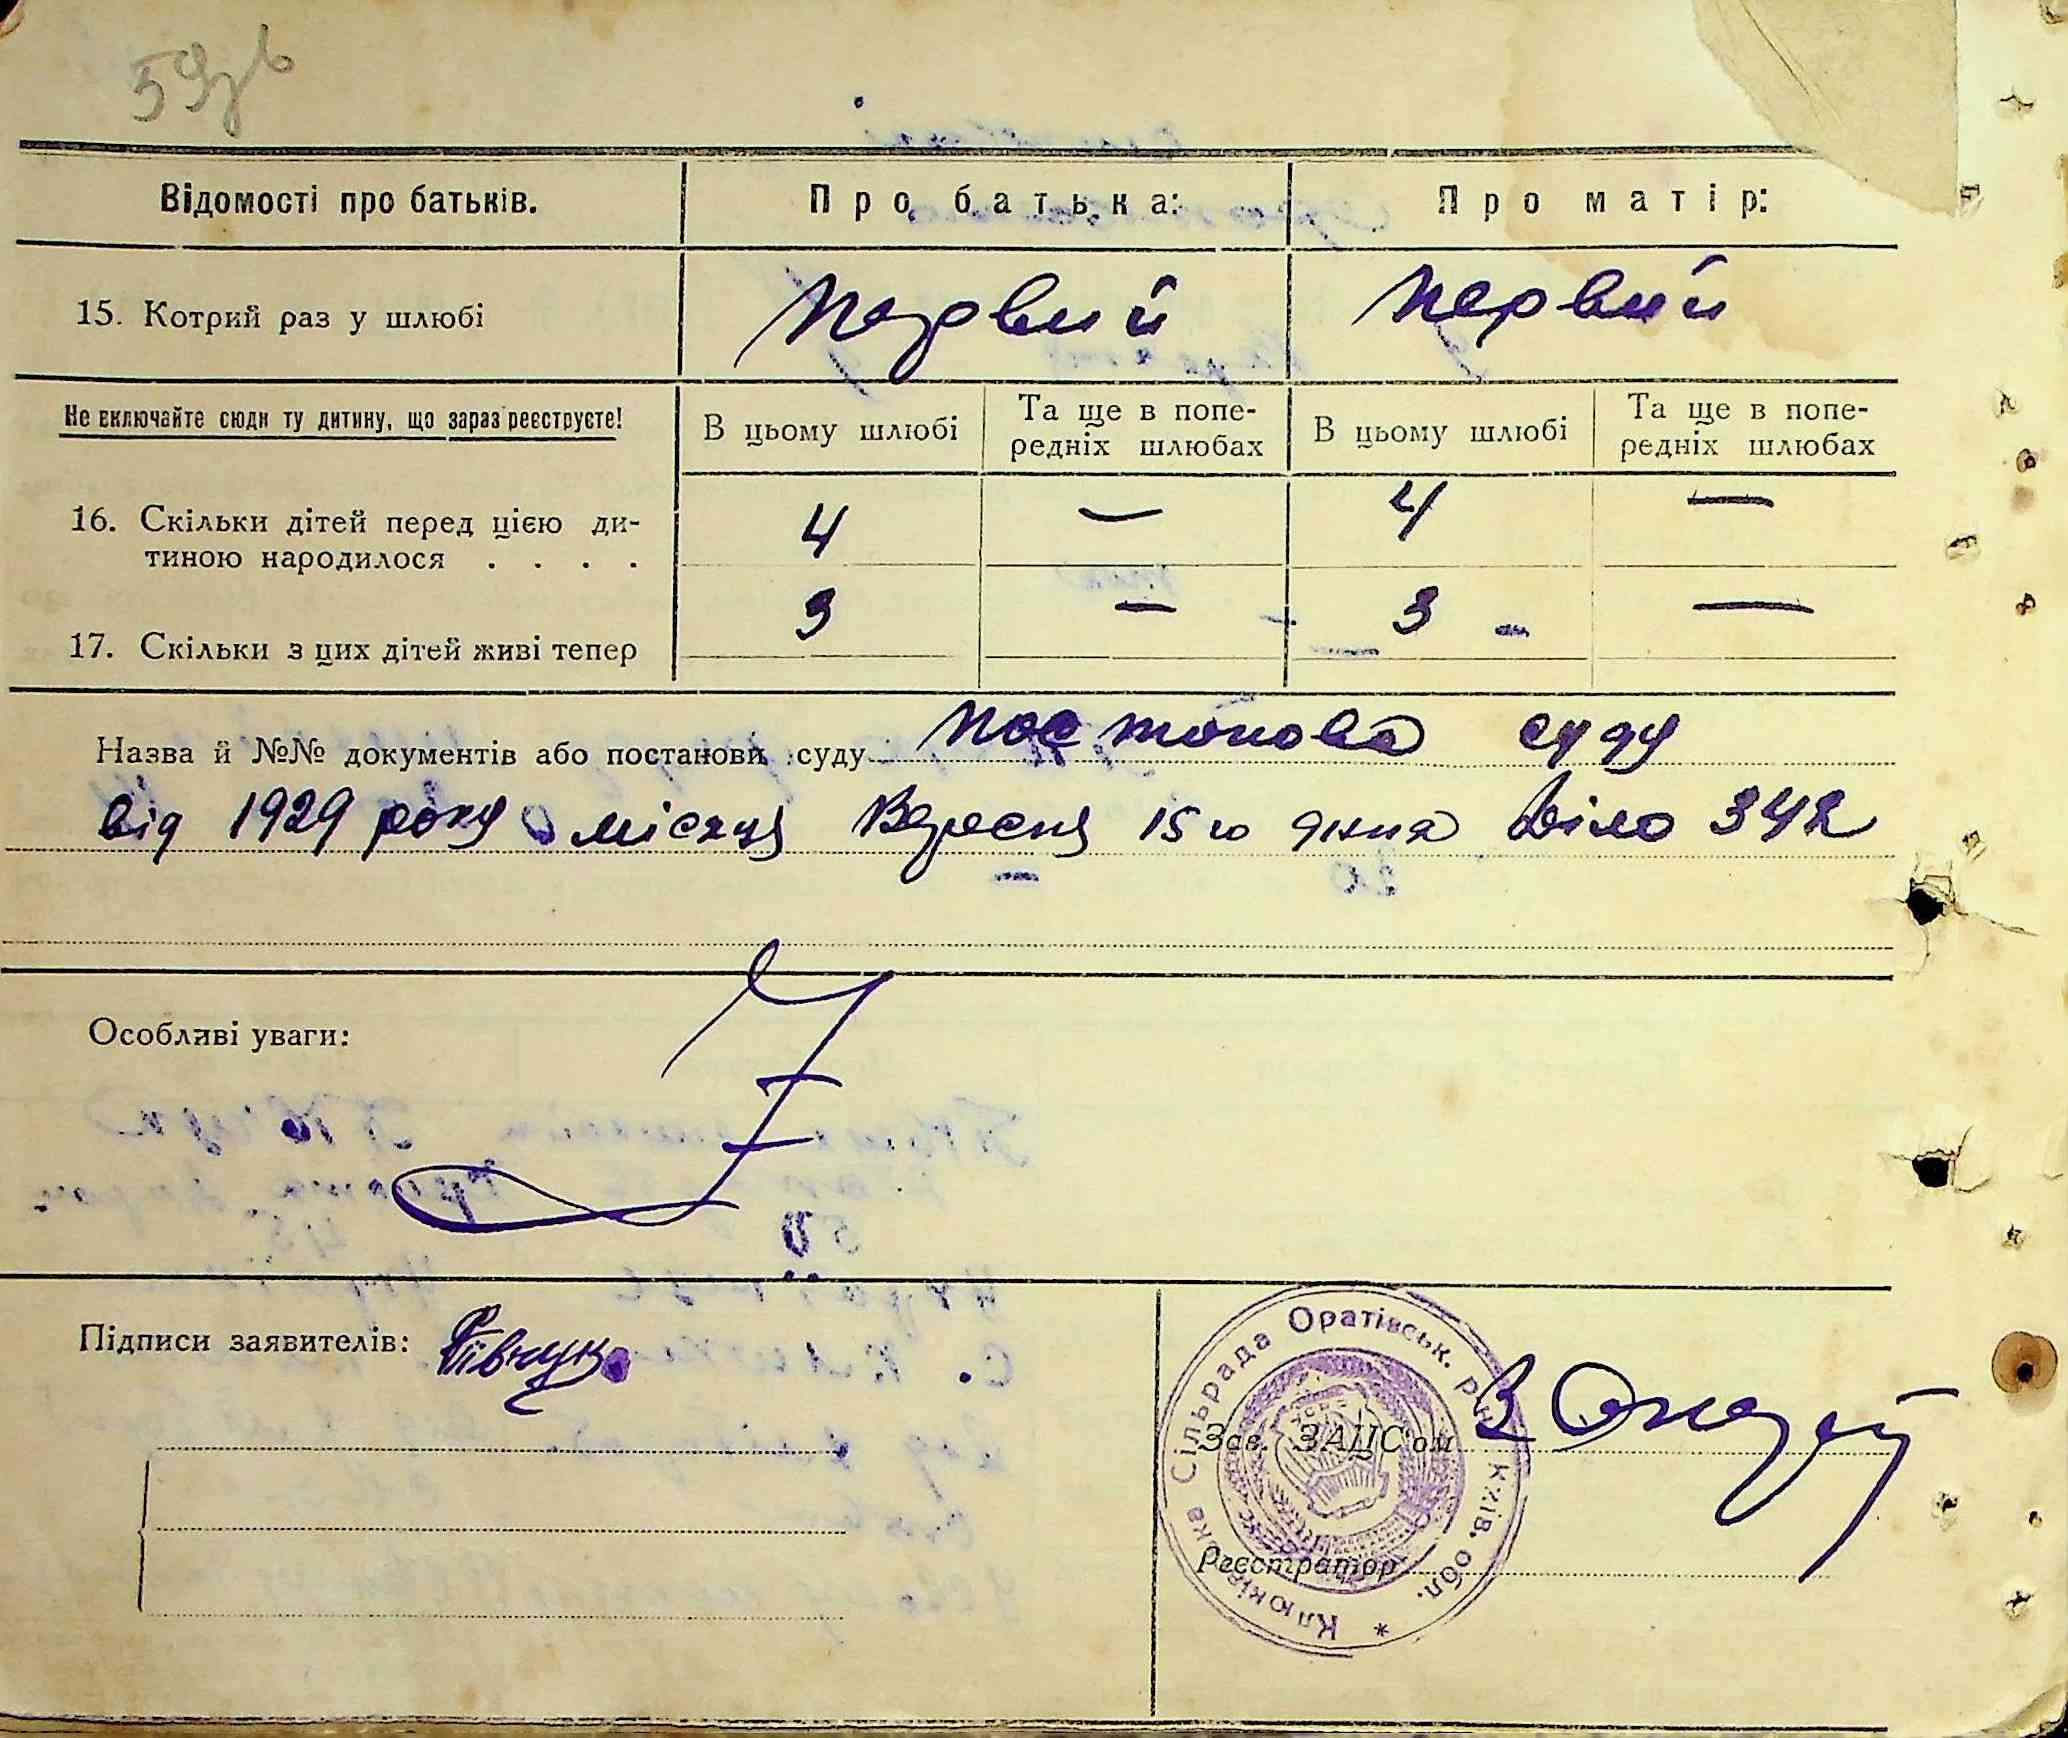 59зв
Відомості про батьків.
Про батька:
Про матір:
15. Котрий раз у шлюбі
первий
первий
Не включайте сюди ту дитину, що зараз реєструєте!
В цьому шлюбі
Та ще в попе-
редніх шлюбах
В цьому шлюбі
Та ще в попе-
редніх шлюбах
16. Скільки дітей перед цією ди-
тиною народилося . . . .
4 — 4 —
17. Скільки з цих дітей живі тепер
3 — 3 —
Назва й №№ документів або постанови суду постонова суду
від 1929 року місяця Вересня 15го дння Діло 342
Особливі уваги:
Підписи заявителів: Півчук
Клюківська Сільрада Оратівськ. р-н Київ. обл. *
Зав. ЗАЦС'ом
Реєстратор